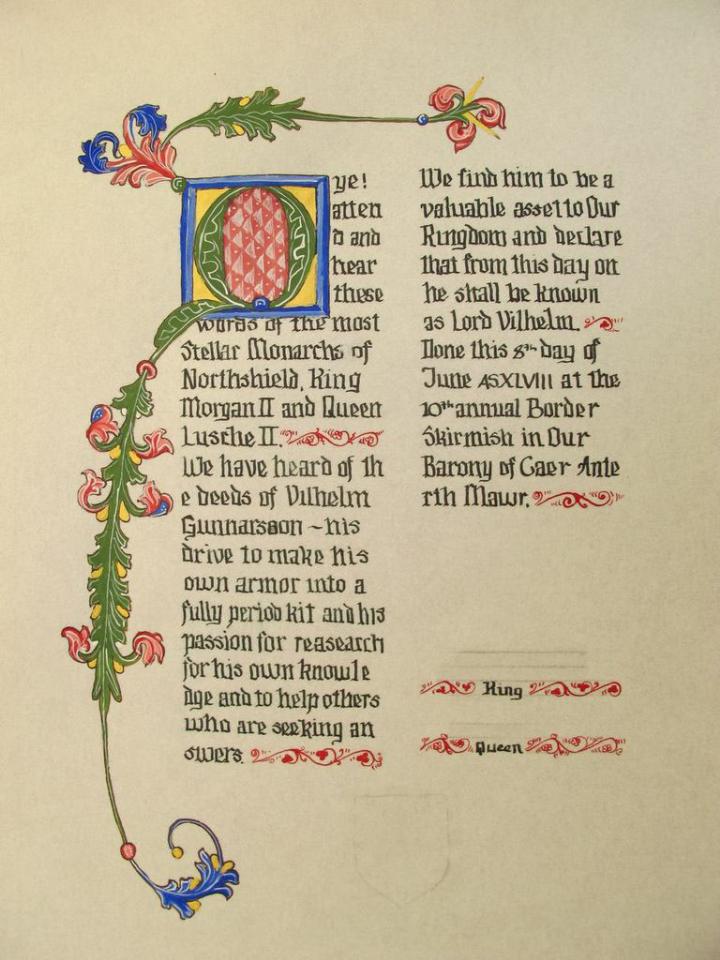 Oye!
atten
d and
hear
these
words of the most
Stellar Monarchs of
Northshield, King
Morgan II and Queen
Lusche II.
We have heard of th
e deeds of Vilhelm
Gunnarsson ~ his
drive to make his
own armor into a
fully period kit and his
passion for reasearch
for his own knowle
dge and to help others
who are seeking an
swers.
We find him to be a
valuable asset to Our
Kingdom and declare
that from this day on
he shall be known
as Lord Vilhelm.
Done this 8th day of
June ASXLVIII at the
10th annual Border
Skirmish in Our
Barony of Caer Ante
rth Mawr.
King
Queen